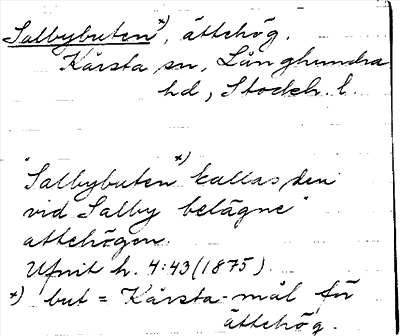 Salbybuten x), ättehög.
Kårsta sn, Långhundra
hd, Stockh. l.
"Salbybuten" x) kallas den
vid Salby belägne"
attehögen.
Ufmt h. 4:43 (1875).
x) but = Kårsta-mål för
ättehög.